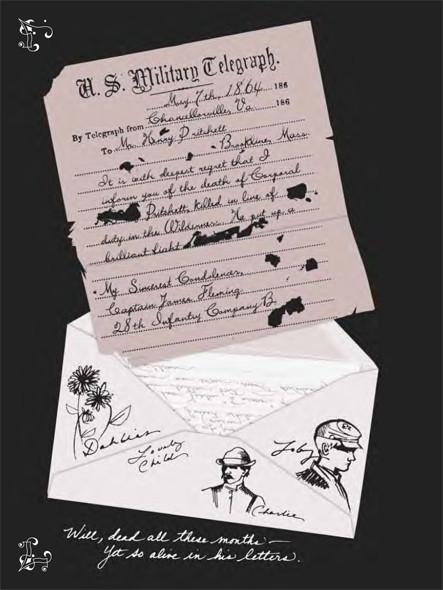 U. S. Military Telegraph.
May 7th, 1864 186
Chancellorsville, Va. 186
By Telegraph from
To Mr. Henry Pritchett
Brookline, Mass.
It is with deepest regret that I
inform you of the death of Corporal
Pritchett, killed in line of
duty in the Wilderness. He put up a
brilliant fight
My Sincerest Condolences,
Captain James Fleming
28th Infantry Company B
Dahlias
Lovely
Child
Toby
Charlie
Will, dead all these months —
Yet so alive in his letters.